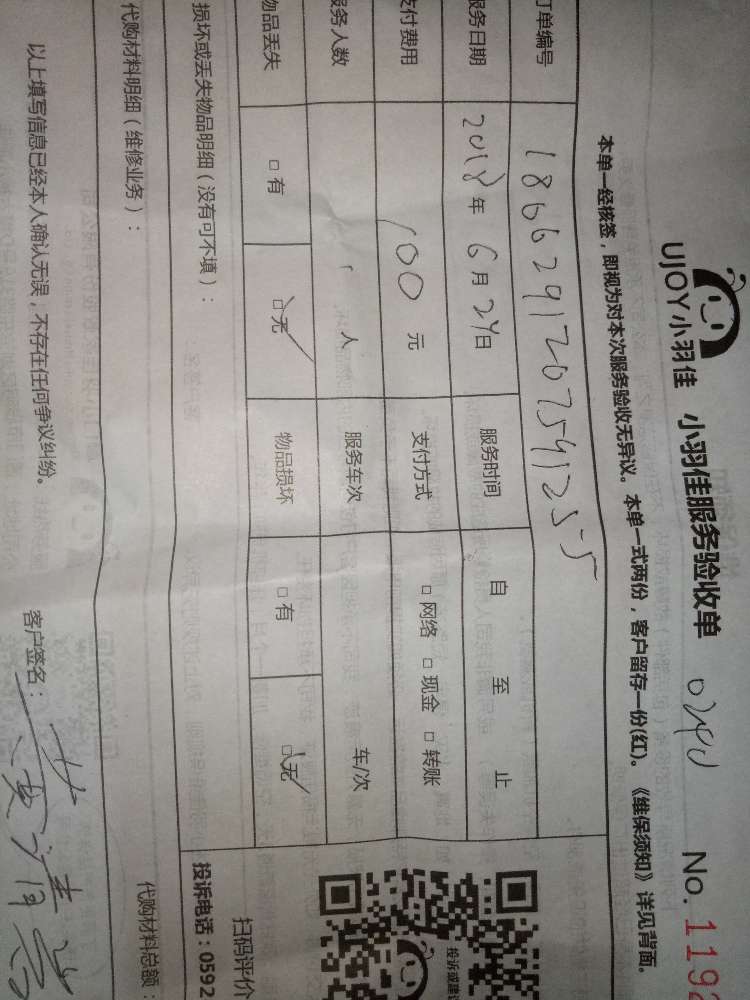 UJOY小羽佳 小羽佳服务验收单 0240 No. 1192
本单一经核签，即视为对本次服务验收无异议。本单一式两份，客户留存一份(红)。《维保须知》详见背面。
订单编号 186629120754125 5
服务日期 2018年 6月 24日 服务时间 自 至 止
支付费用 100 元 支付方式 □ 网络 □ 现金 □ 转账
服务人数 1 人 服务车次 车/次
物品丢失 □ 有 □ 无 物品损坏 □ 有 □ 无
损坏或丢失物品明细（没有可不填）：
代购材料明细（维修业务）：
代购材料总额：
以上填写信息已经本人确认无误，不存在任何争议纠纷。 客户签名：
投诉或建议
扫码评价
投诉电话：0592